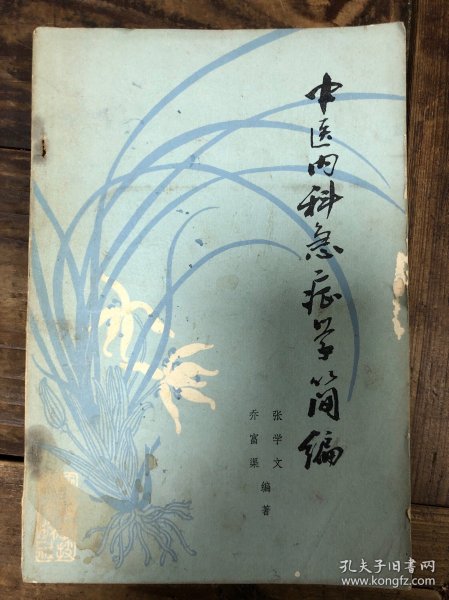 中医内科急症学简编
张学文
乔富渠
编著
孔夫子旧书网
www.kongfz.com